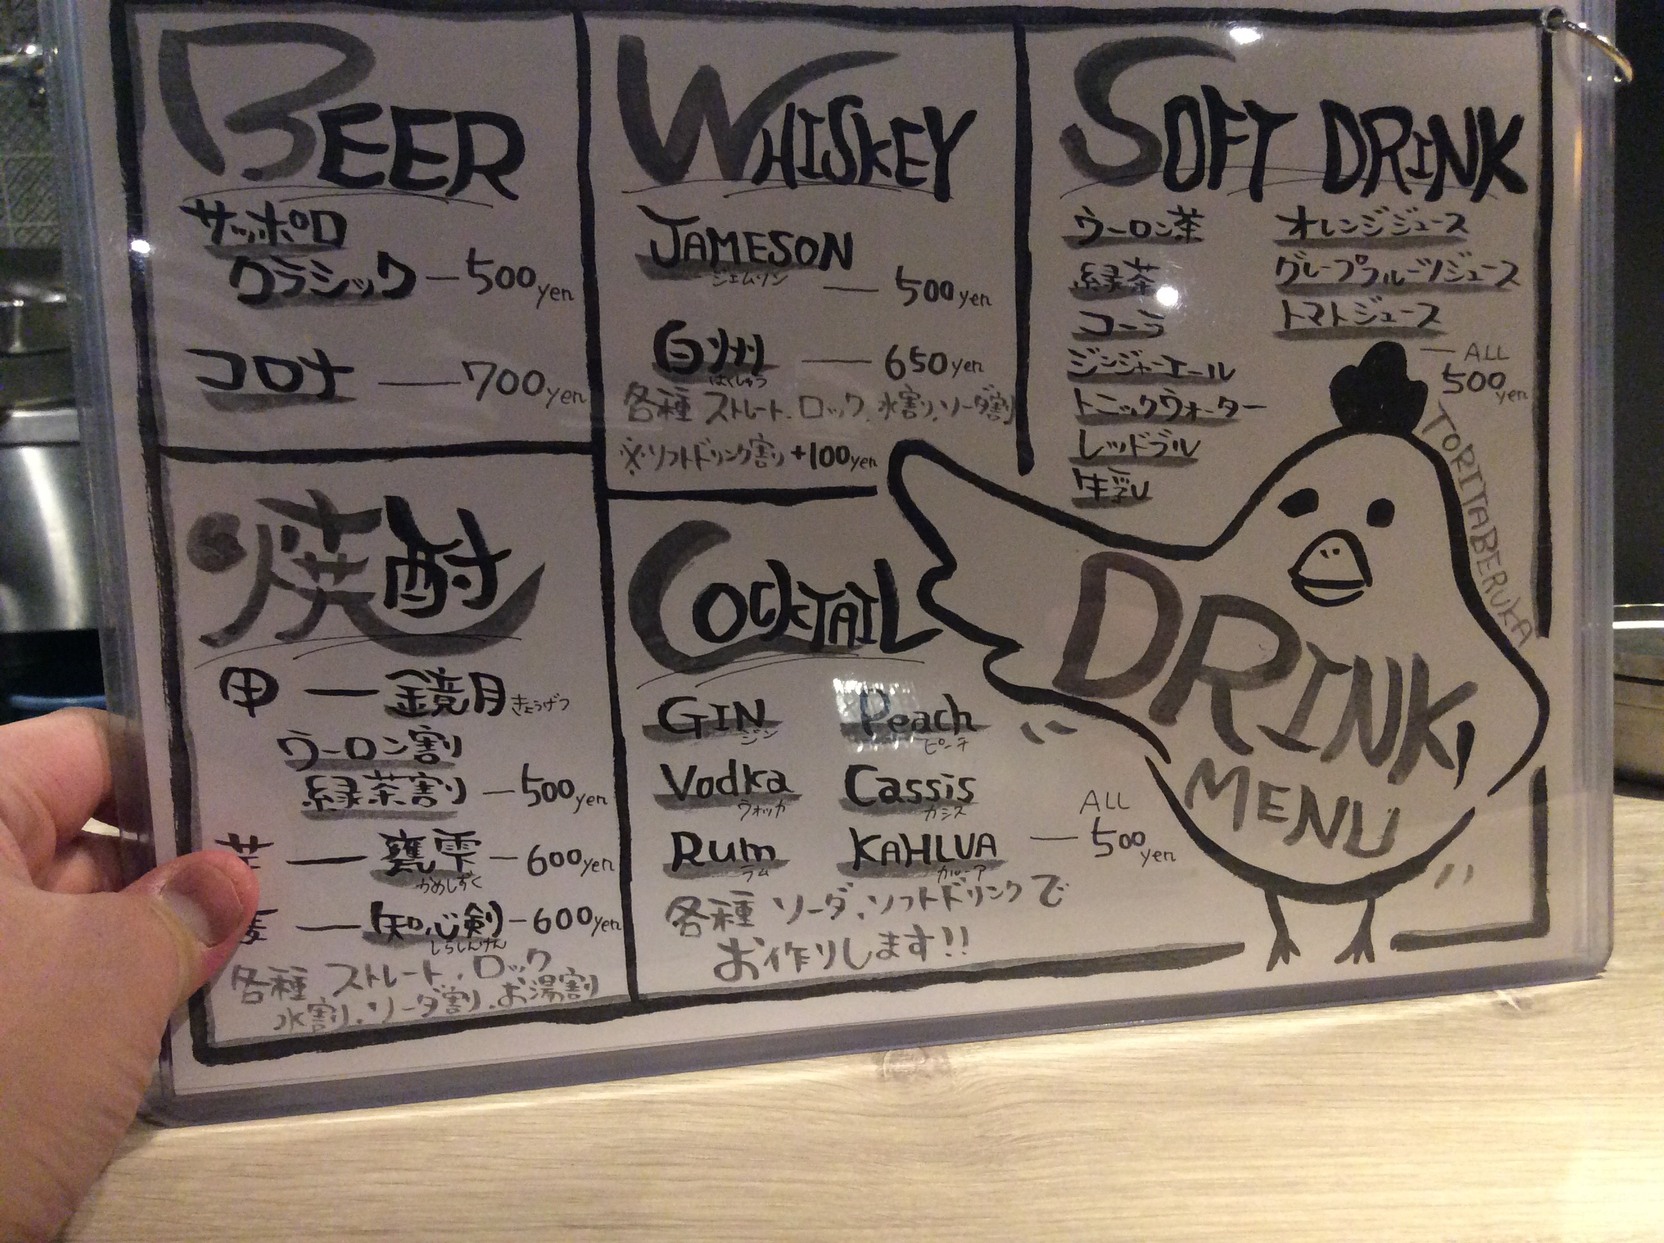 BEER
サッポロ
クラシック — 500yen
コロナ — 700yen
WHISKEY
JAMESON
ジェムソン
— 500yen
白州 — 650yen
はくしゅう
各種 ストレート、ロック、水割り、ソーダ割
※ソフトドリンク割 +100yen
SOFT DRINK
ウーロン茶
緑茶
コーラ
ジンジャーエール
トニックウォーター
レッドブル
牛乳
オレンジジュース
グレープフルーツジュース
トマトジュース
— ALL
500yen
焼酎
甲 — 鏡月 きょうげつ
ウーロン割
緑茶割 — 500yen
— 甕雫 — 600yen
かめしずく
— 知心剣 — 600yen
しらしんけん
各種 ストレート、ロック
水割り、ソーダ割り、お湯割
COCKTAIL
GIN
ジン
Vodka
ウォッカ
Rum
ラム
Peach
ピーチ
Cassis
カシス
KAHLUA
カルーア
— ALL
500yen
各種 ソーダ、ソフトドリンクで
お作りします!!
TORITTABERUKA
DRINK
MENU